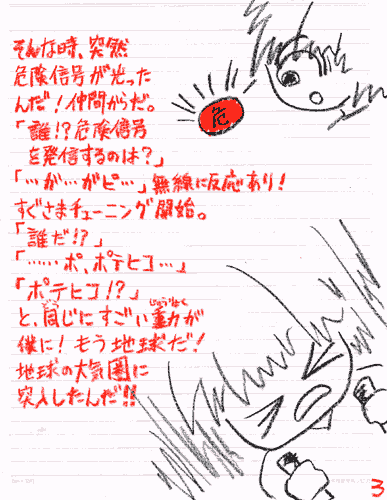 そんな時、突然
危険信号が光った
んだ!仲間からだ。
「誰!?危険信号
を発信するのは?」
「…が…がピ…」無線に反応あり!
すぐさまチューニング開始。
「誰だ!?」
「……ポ、ポテヒコ…」
「ポテヒコ!?」
と、同じにすごい重力が
僕に!もう地球だ!
地球の大気圏に
突入したんだ!!
危
3